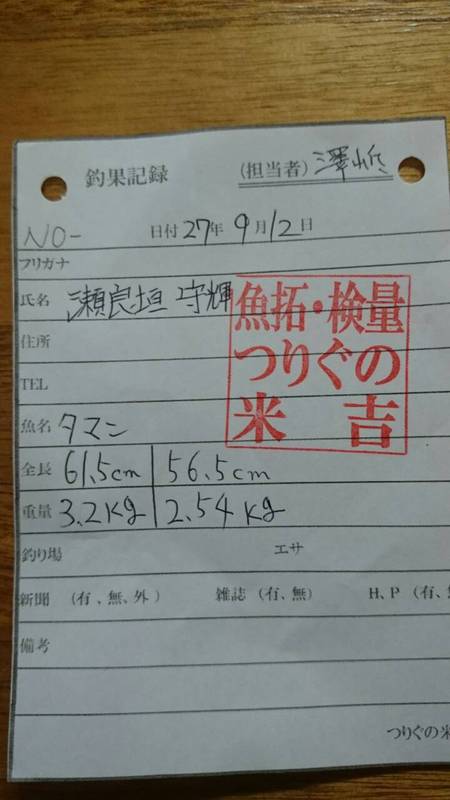 釣果記録 (担当者) 澤岻
NO-
日付 27年 9月12日
フリガナ
氏名 瀬良垣 守輝
住所
TEL
魚拓・検量
つりぐの
米 吉
魚名 タマン
全長 61.5cm 56.5cm
重量 3.2kg 2.54kg
釣り場 エサ
新聞 (有、無、外) 雑誌 (有、無) H、P (有、
備考
つりぐの米